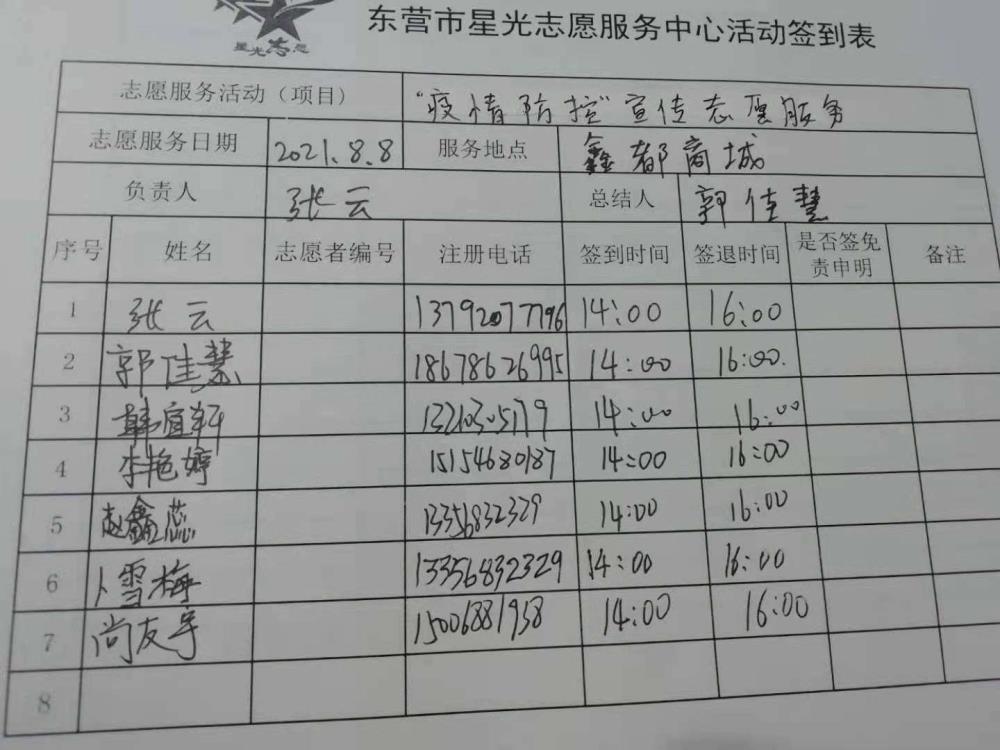 星光志愿
东营市星光志愿服务中心活动签到表
志愿服务活动（项目） “疫情防控”宣传志愿服务
志愿服务日期 2021.8.8 服务地点 鑫都商城
负责人 张云 总结人 郭佳慧
序号 姓名 志愿者编号 注册电话 签到时间 签退时间 是否签免责申明 备注
1 张云 13792077796 14:00 16:00
2 郭佳慧 18678626995 14:00 16:00.
3 韩宜轩 13210305179 14:00 16:00
4 李艳婷 15154680187 14:00 16:00
5 赵鑫蕊 13356832329 14:00 16:00
6 卜雪梅 13356832329 14:00 16:00
7 尚友宇 15006881938 14:00 16:00
8